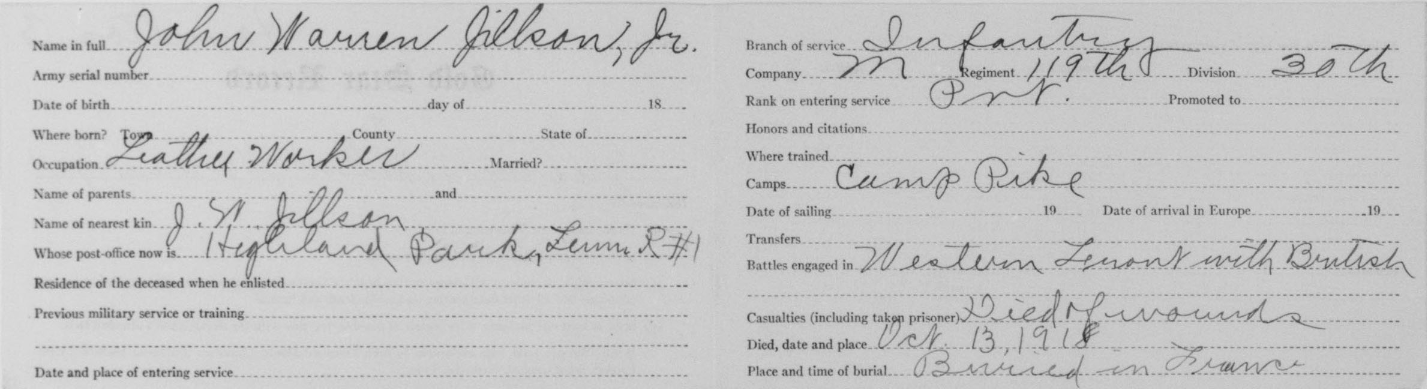 Name in full John Warren Jillson, Jr.
Army serial number
Date of birth day of 18
Where born? Town County State of
Occupation Leather Worker Married?
Name of parents and
Name of nearest kin J. W. Jillson
Whose post-office now is Highland Park, Tenn. R#1
Residence of the deceased when he enlisted
Previous military service or training
Date and place of entering service
Branch of service Infantry
Company M Regiment 119th Division 30th
Rank on entering service Pvt. Promoted to
Honors and citations
Where trained
Camps Camp Pike
Date of sailing 19 Date of arrival in Europe 19
Transfers
Battles engaged in Western Front with British
Casualties (including taken prisoner) Died of wounds
Died, date and place Oct. 13, 1918
Place and time of burial Buried in France